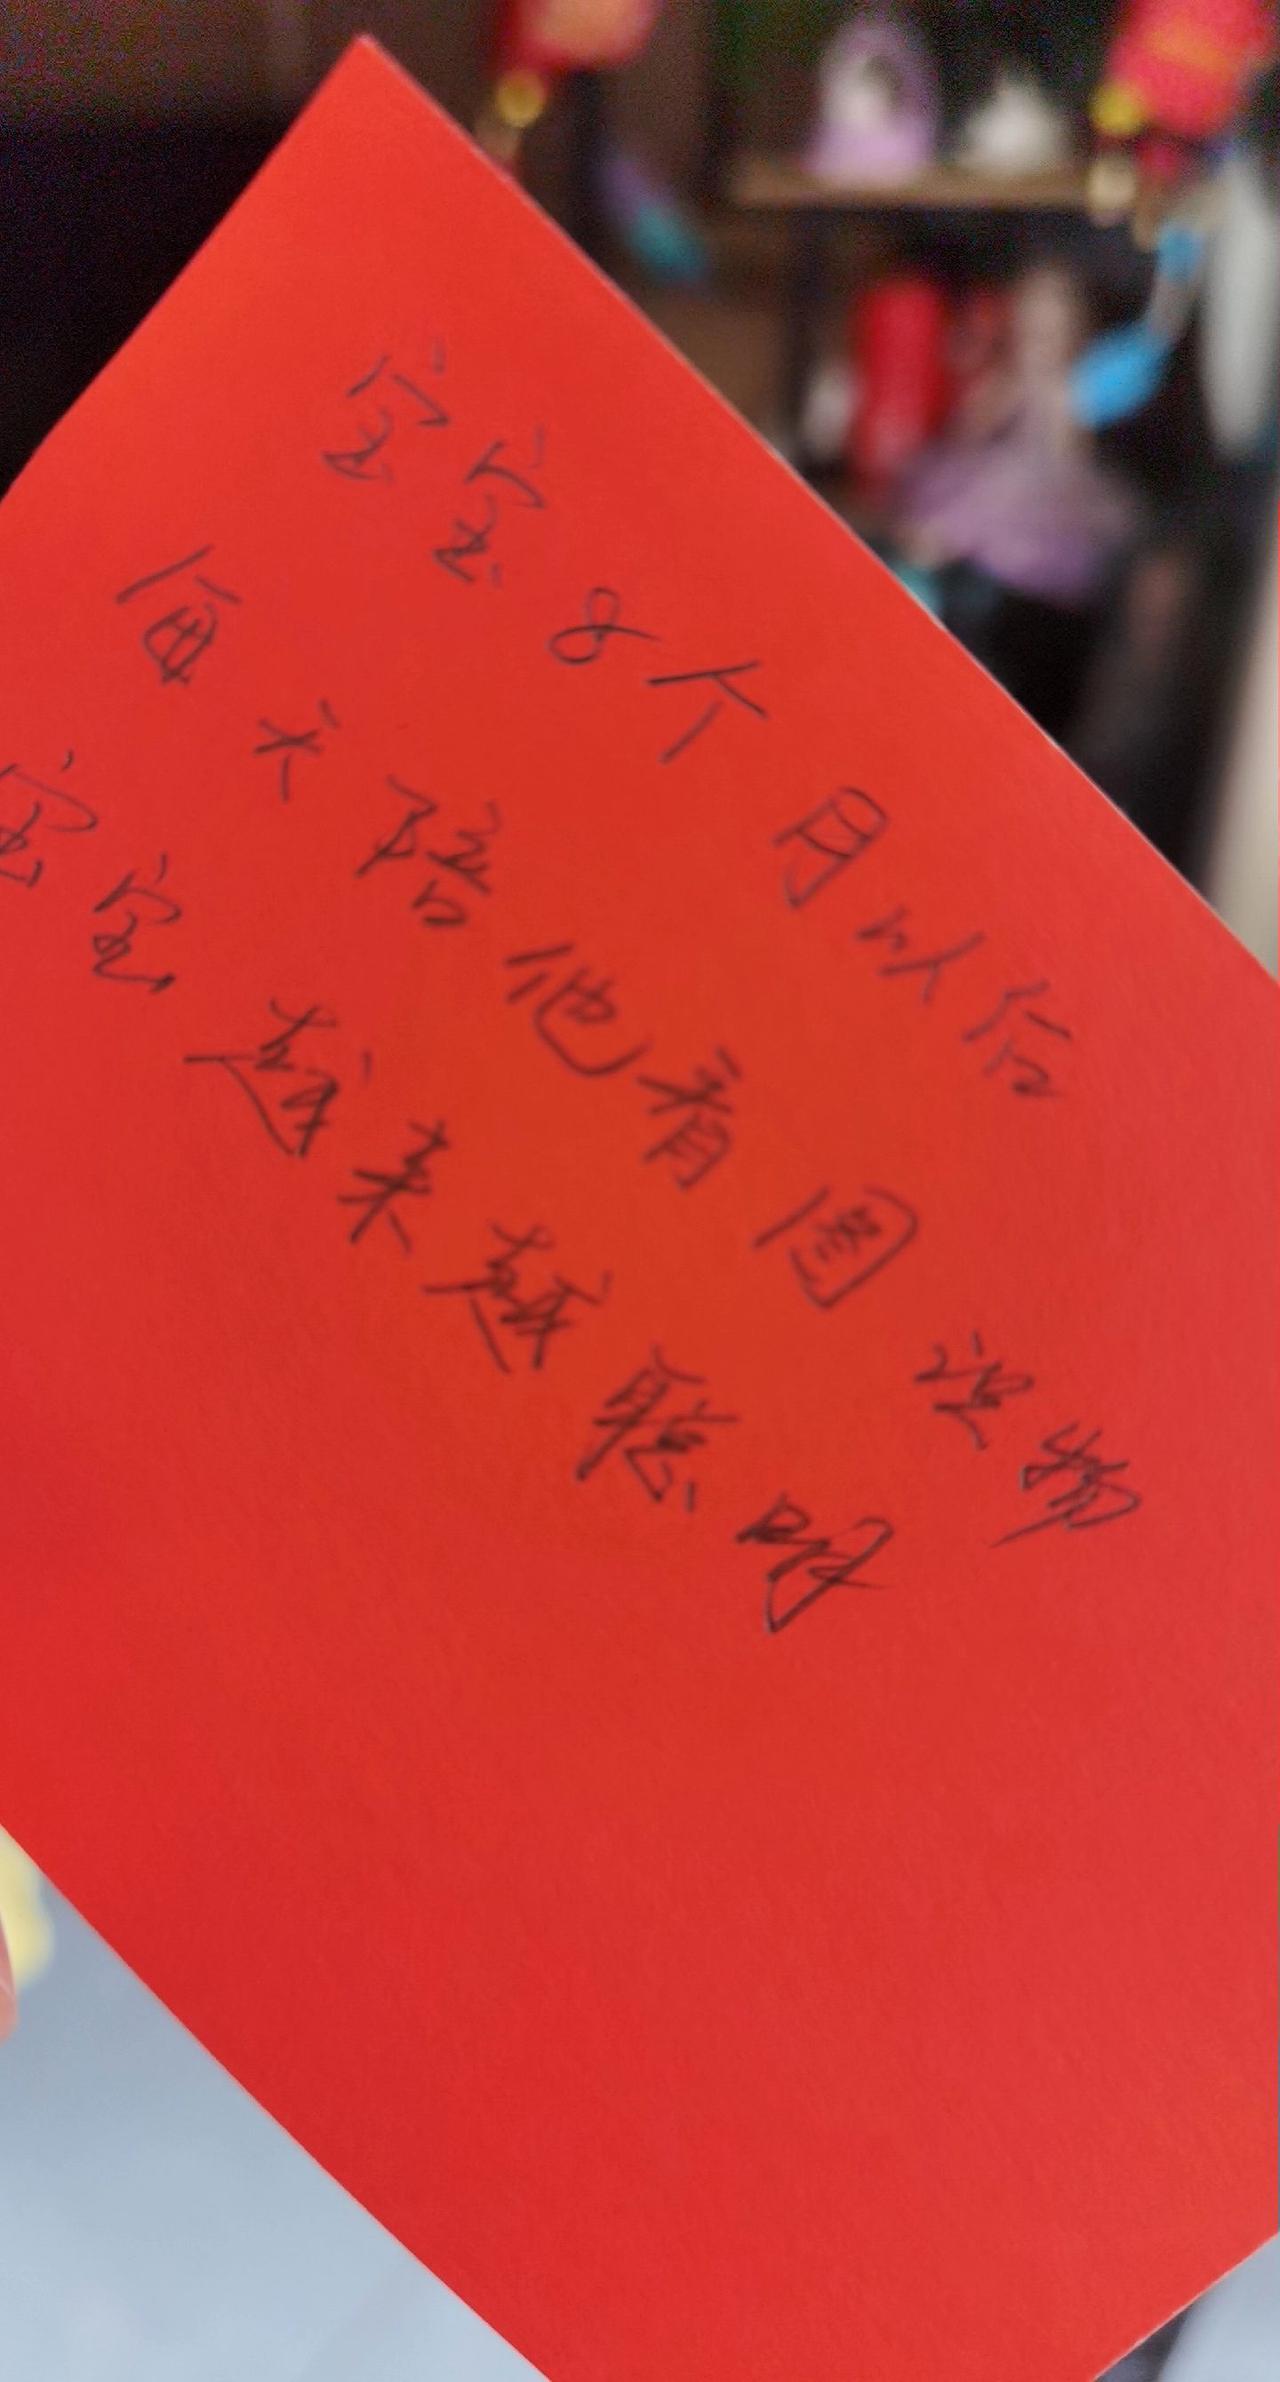 宝宝8个月以后
每天陪他看图识物
宝宝越来越聪明